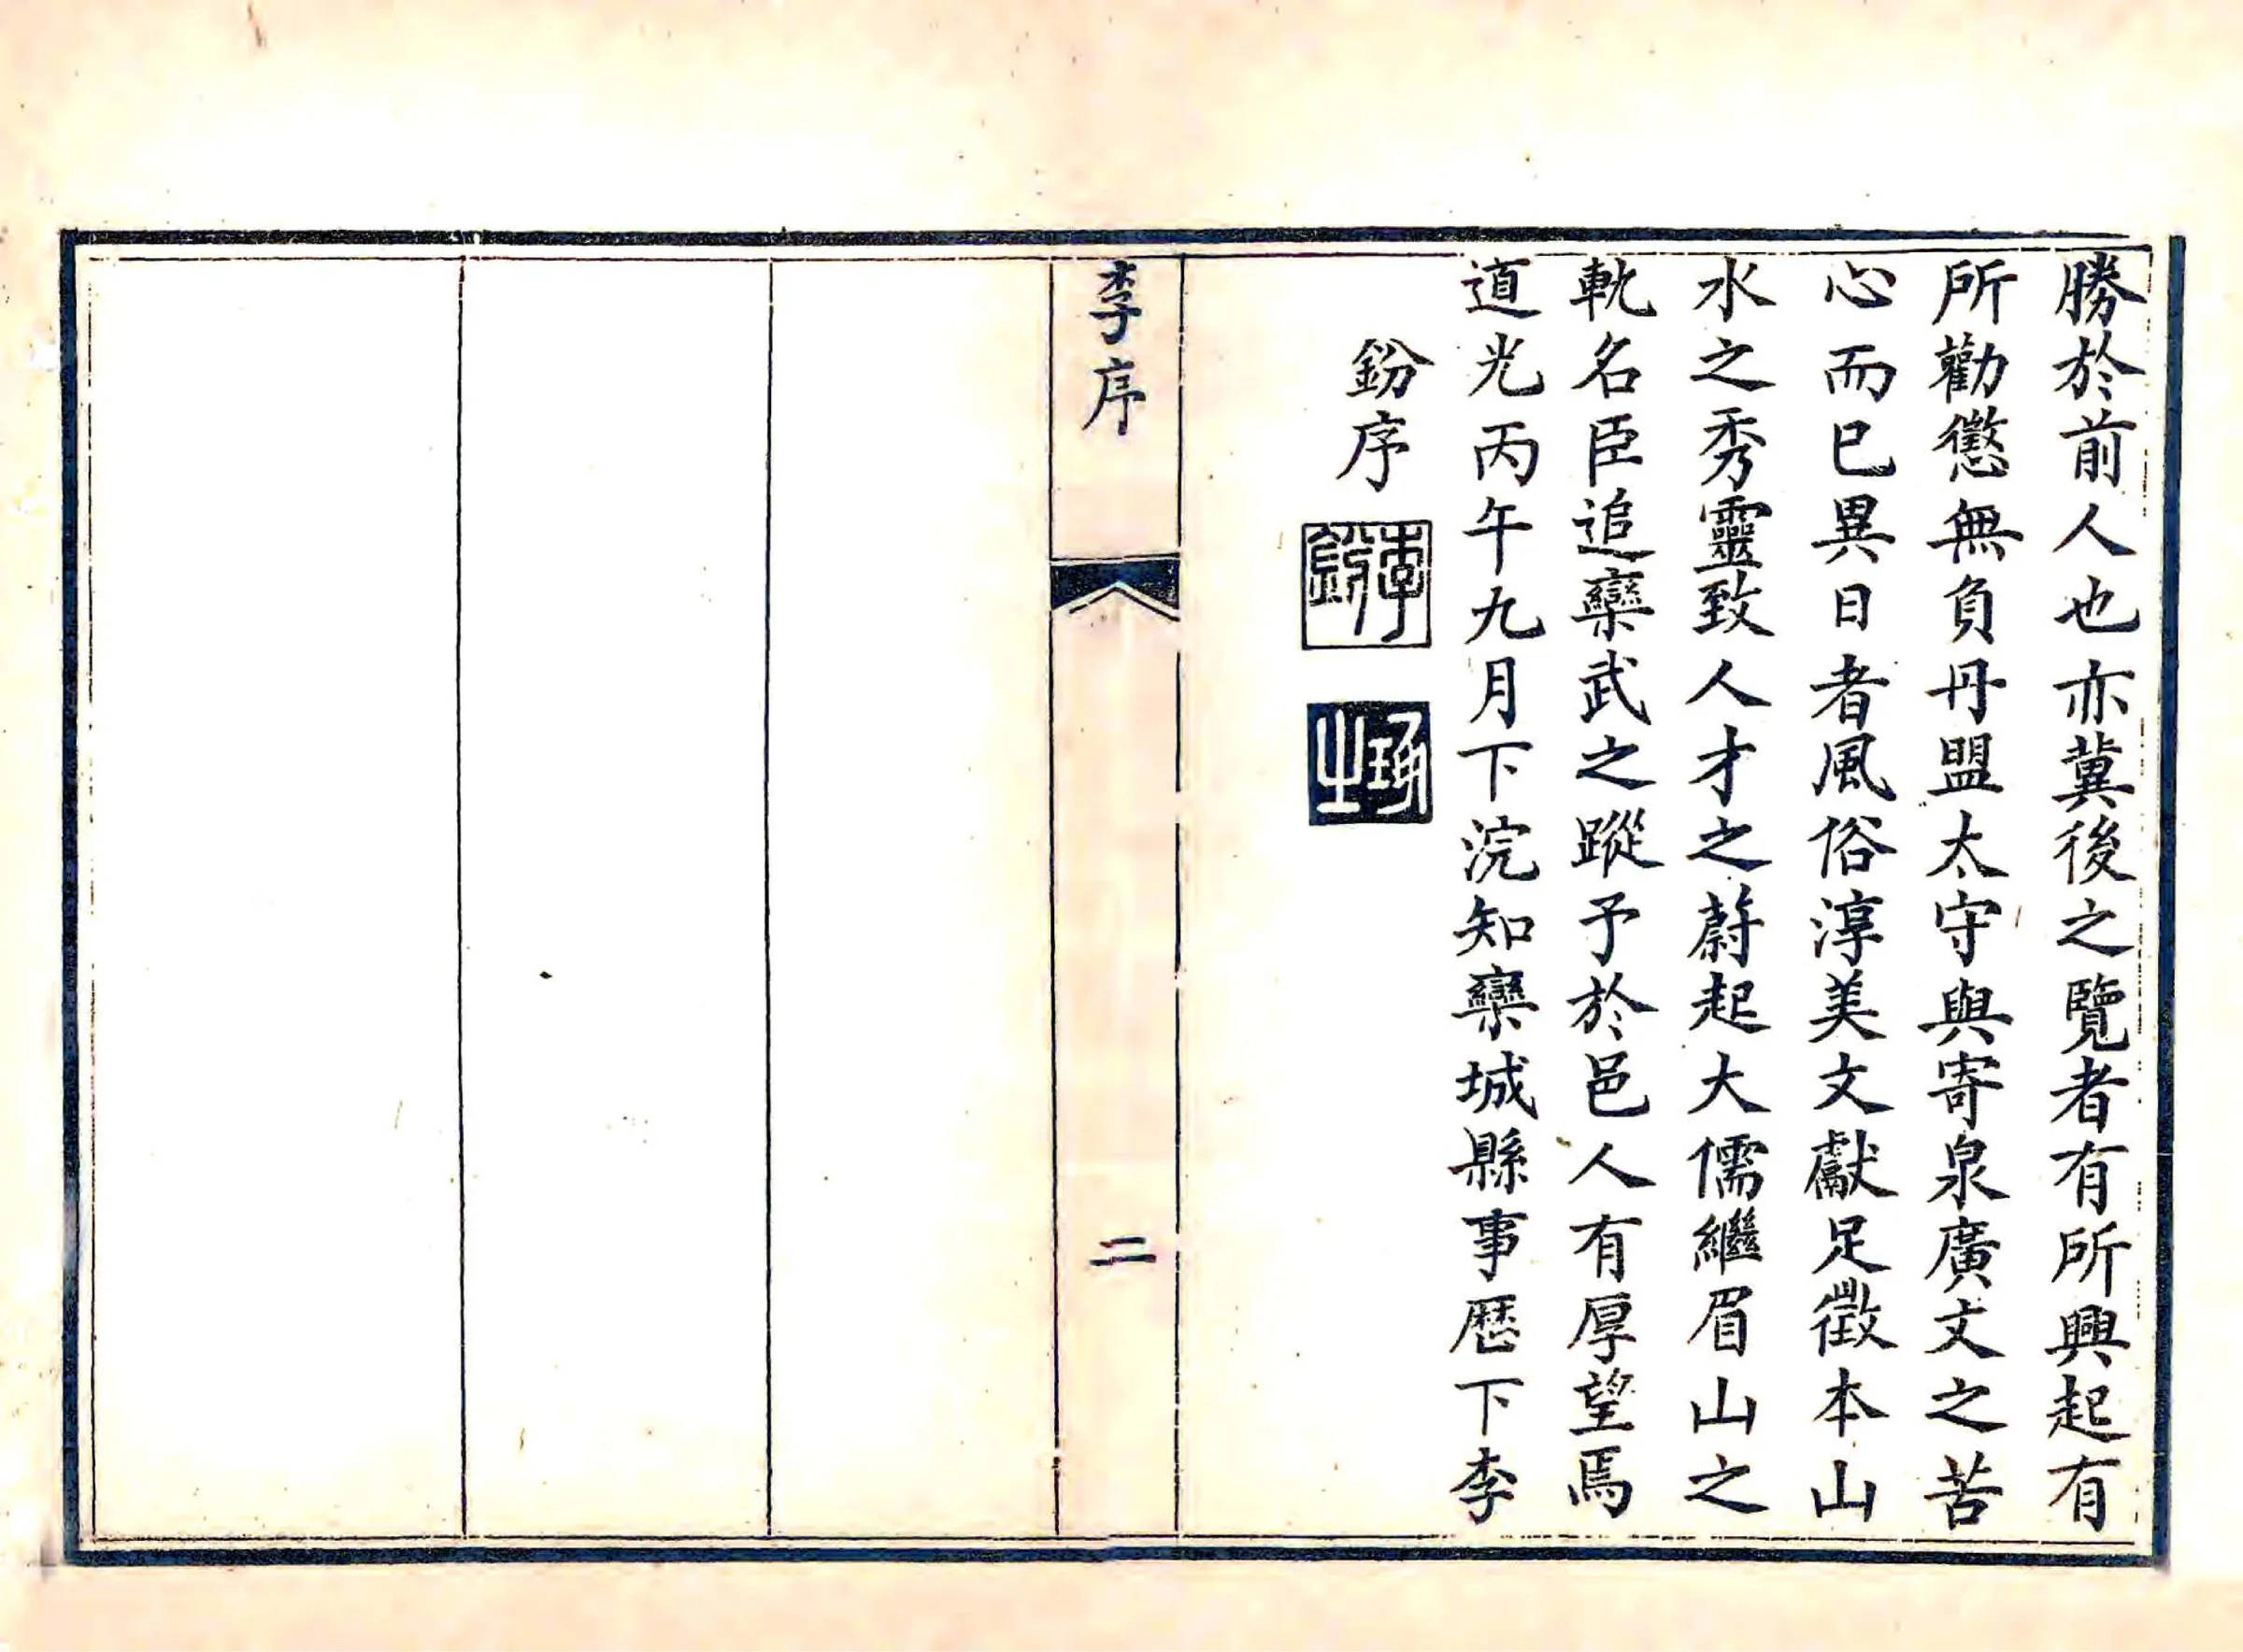 勝於前人也亦冀後之覽者有所興起有
所勸懲無負丹盟太守與寄泉廣文之苦
心而已異日者風俗淳美文獻足徵本山
水之秀靈致人才之蔚起大儒繼眉山之
軌名臣追欒武之蹤予於邑人有厚望焉
道光丙午九月下浣知欒城縣事歷下李
鈖序
李鈖
李序
二